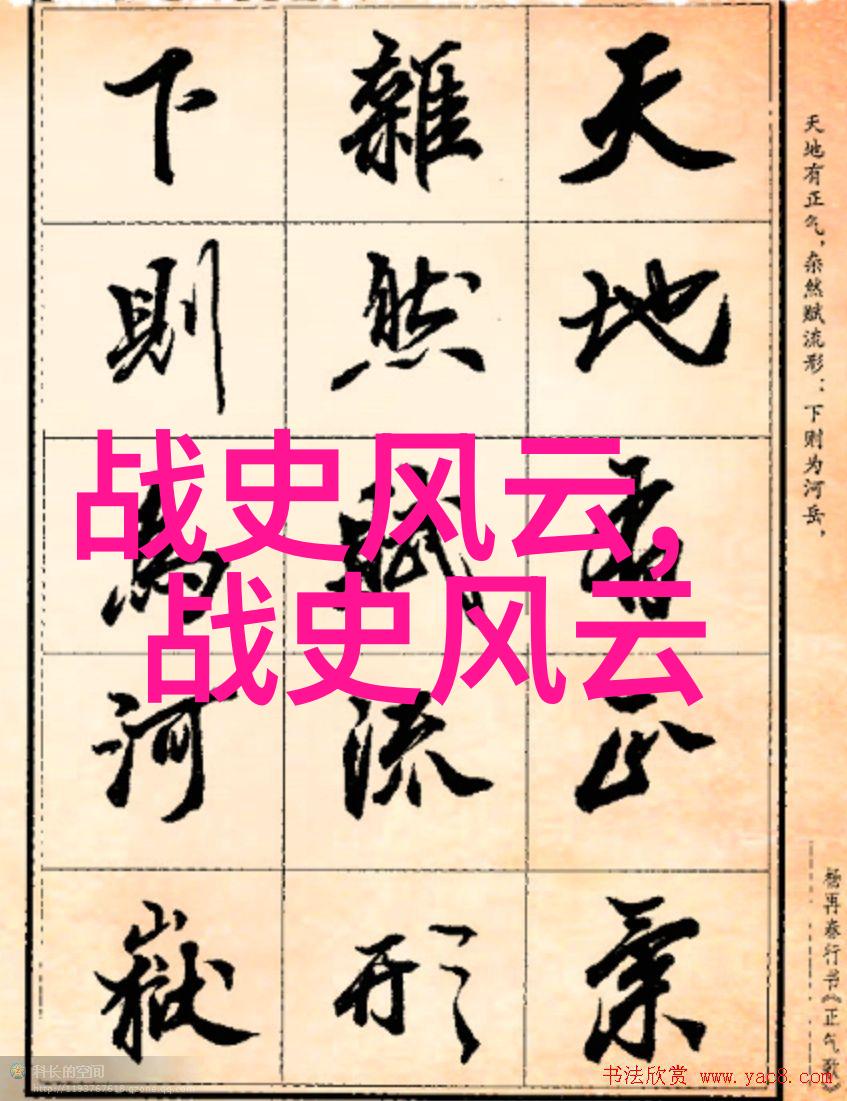 天地有正氣
雜然賦流形
下則為河嶽
天地有正气，杂然赋流形：下则为河岳，
杨再春行书《正气歌》
战史风云,
战史风云
科长的空间
http://1193767618.qzone.qq.com
书法欣赏 www.yac8.com